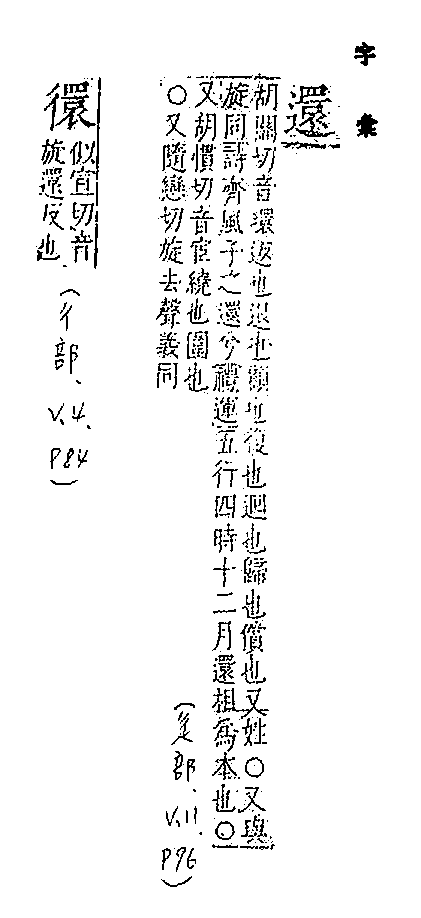 字彙
還
胡關切音環返也退也顧也復也迴也歸也償也又姓○又與
旋同詩齊風子之還兮禮運五行四時十二月還相為本也○
又胡慣切音宦繞也圍也
○又隨戀切旋去聲義同
(辵部、V.11、P96)
似宣切音
旋還反也
(彳部、V.4、P84)